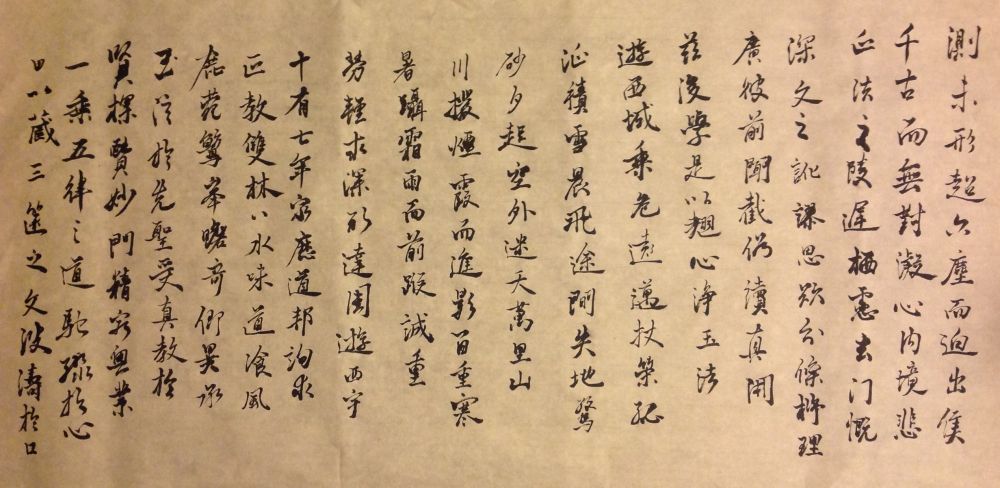 測未形超六塵而迥出隻
千古而無對凝心內境悲
正法之陵遲栖慮玄門慨
深文之訛謬思欲分條析理
廣彼前聞截偽續真開
茲後學是以翹心淨玉法
遊西域乘危遠邁杖策孤
征積雪晨飛途間失地驚
砂夕起空外迷天萬里山
川撥煙霞而進影百重寒
暑躡霜雨而前蹤誠重
勞輕求深願達周遊西宇
十有七年窮歷道邦詢求
正教雙林八水味道飡風
鹿菀鷲峯瞻奇仰異承
至言於先聖受真教於
賢探賾妙門精窮奧業
一乘五律之道馳驟於心
田八藏三篋之文波濤於口